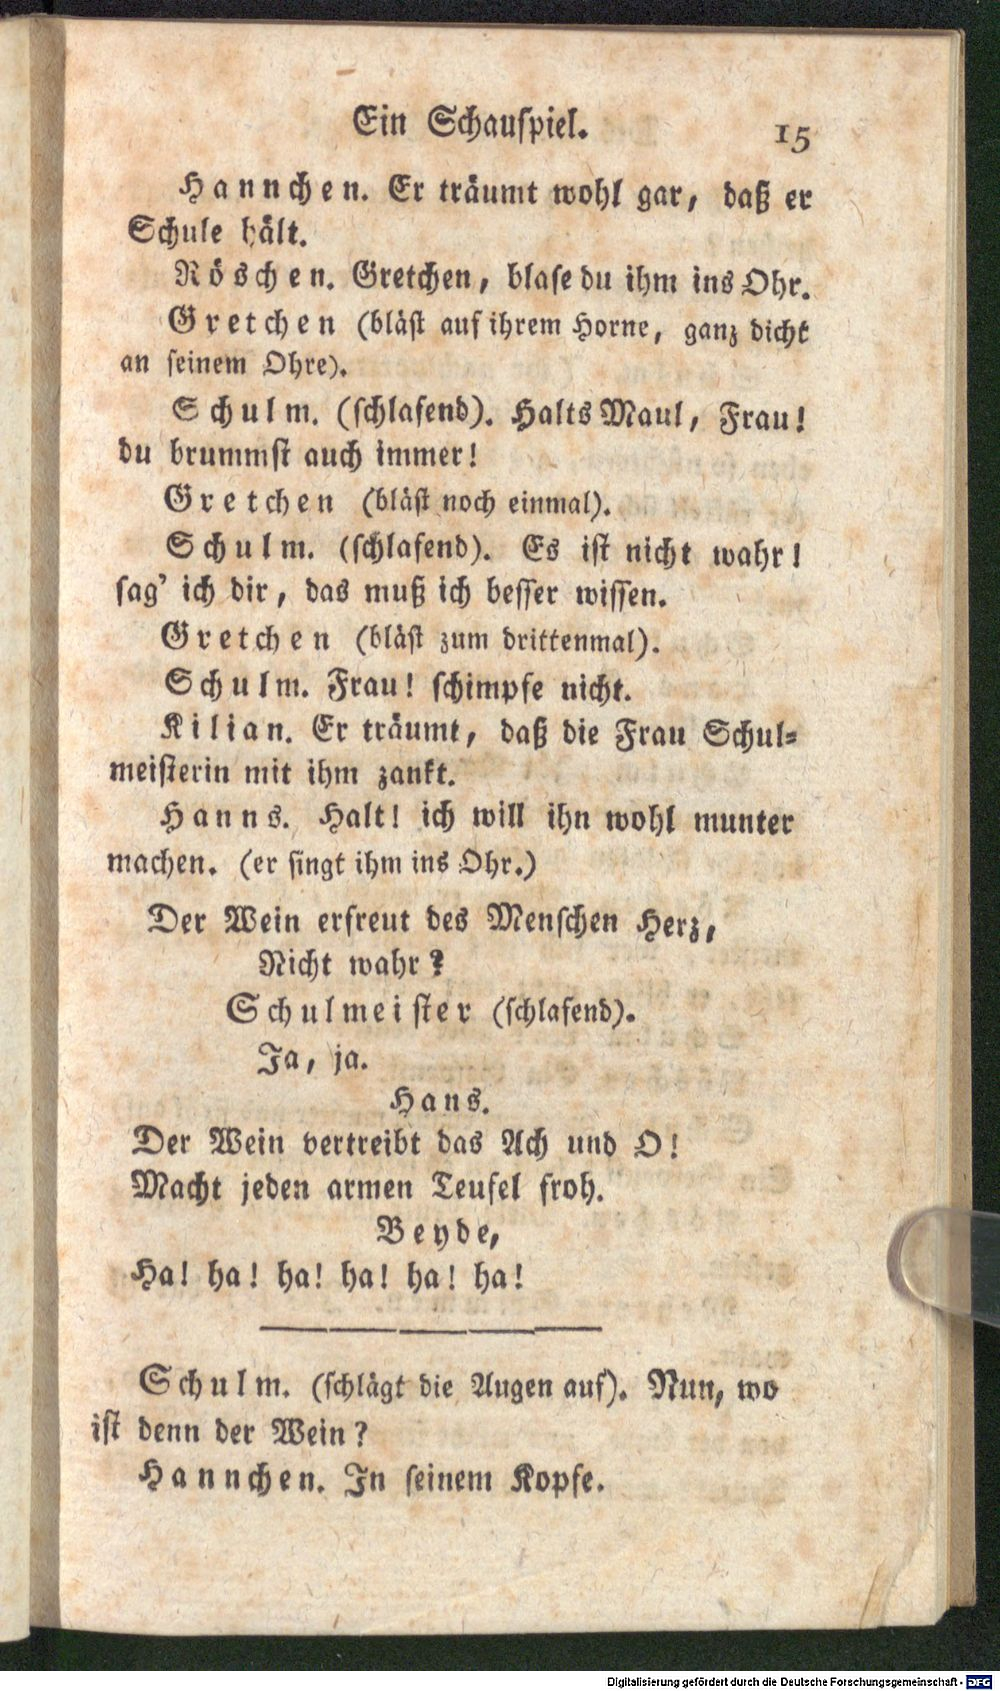 Ein Schauspiel. 15
Hannchen. Er träumt wohl gar, daß er
Schule hält.
Röschen. Gretchen, blase du ihm ins Ohr.
Gretchen (bläst auf ihrem Horne, ganz dicht
an seinem Ohre).
Schulm. (schlafend). Halts Maul, Frau!
du brummst auch immer!
Gretchen (bläst noch einmal).
Schulm. (schlafend). Es ist nicht wahr!
sag' ich dir, das muß ich besser wissen.
Gretchen (bläst zum drittenmal).
Schulm. Frau! schimpfe nicht.
Kilian. Er träumt, daß die Frau Schul-
meisterin mit ihm zankt.
Hanns. Halt! ich will ihn wohl munter
machen. (er singt ihm ins Ohr.)
Der Wein erfreut des Menschen Herz,
Nicht wahr?
Schulmeister (schlafend).
Ja, ja.
Hans.
Der Wein vertreibt das Ach und O!
Macht jeden armen Teufel froh.
Beyde,
Ha! ha! ha! ha! ha! ha!
Schulm. (schlägt die Augen auf). Nun, wo
ist denn der Wein?
Hannchen. In seinem Kopfe.
Digitalisierung gefördert durch die Deutsche Forschungsgemeinschaft - DFG